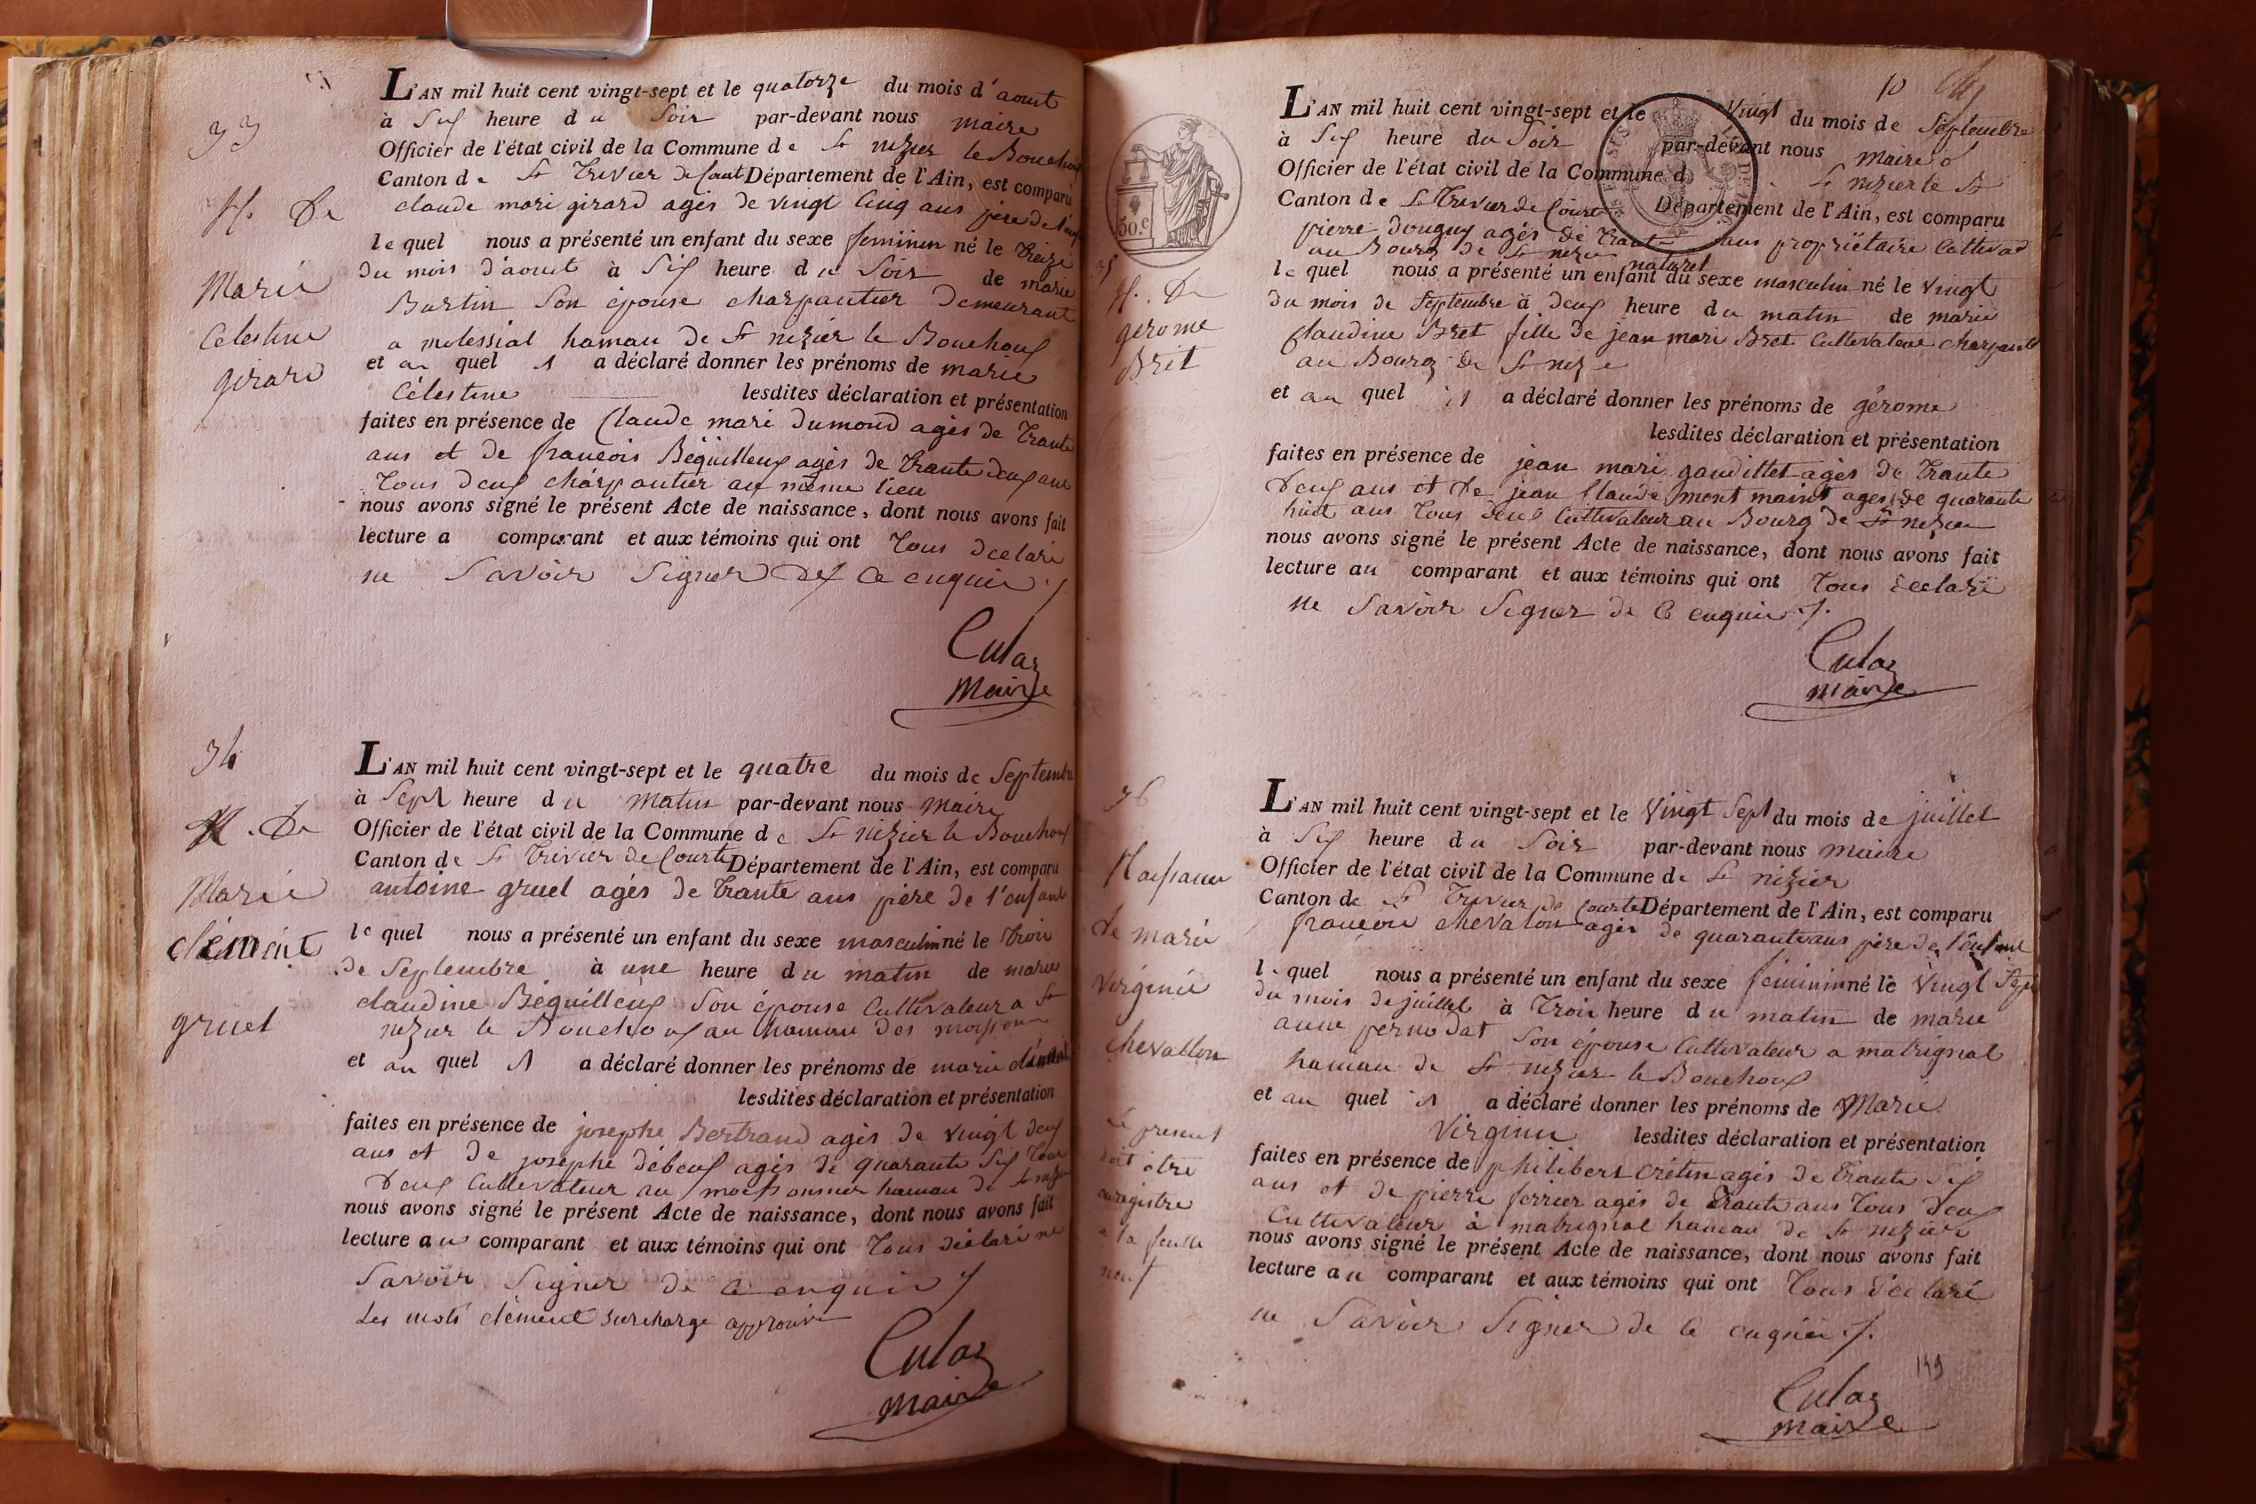 33
N. De
Marie
Celestine
girard
L'AN mil huit cent vingt-sept et le quatorze du mois d'aout
à Six heure du Soir par-devant nous maire
Officier de l'état civil de la Commune de St nizier le Bouchoux
Canton de St Trivier de Court Département de l'Ain, est comparu
claude mari girard agés de vingt Cinq ans père de l'enf
lequel nous a présenté un enfant du sexe feminin né le treize
du mois d'aout à Six heure du Soir de marie
Burtin Son épouse charpantier Demeurant
a molessiat hamau de St nizier le Bouchoux
et au quel il a déclaré donner les prénoms de marie
Célestine lesdites déclaration et présentation
faites en présence de Claude mari dumond agés de trante
ans et de francois Béquilleux agés de trante deux ans
Tous deux chárpantier au même lieu
nous avons signé le présent Acte de naissance, dont nous avons fait
lecture a comparant et aux témoins qui ont Tous déclaré
ne Savoir Signer de Ce enquis
Culaz
Maire
34
N. De
Marie
clément
gruel
L'AN mil huit cent vingt-sept et le quatre du mois de Septembre
à Sept heure du Matin par-devant nous Maire
Officier de l'état civil de la Commune de St nizier le Bouchoux
Canton de St Trivier de Courte Département de l'Ain, est comparu
antoine gruel agés de trante ans père de l'enfant
lequel nous a présenté un enfant du sexe masculin né le trois
de Septembre à une heure du matin de marie
claudine Béquilleux Son épouse Cultivateur a St
nizier le Bouchoux au hamau des
et au quel il a déclaré donner les prénoms de marie clément
lesdites déclaration et présentation
faites en présence de josephe Bertrand agés de vingt deux
ans et de josephe débeuf agés de quarante Six Tous
Deux Cultivateur au hamau de St nizier
nous avons signé le présent Acte de naissance, dont nous avons fait
lecture au comparant et aux témoins qui ont Tous déclaré ne
Savoir Signer de Ce enquis
Les mots clément surcharge approuvé
Culaz
Maire
10
35
N. De
gerome
Bret
50.c
L'AN mil huit cent vingt-sept et le Vingt du mois de Septembre
à Six heure du Soir par-devant nous maire
Officier de l'état civil de la Commune d St nizier le B
Canton de St Trivier de Court Département de l'Ain, est comparu
pierre douguy agés de trante ans propriétaire Cultivat
au Bourg de St nizie
naturel
lequel nous a présenté un enfant du sexe masculin né le vingt
du mois de Septembre à deux heure du matin de marie
Claudine Bret fille de jean mari Bret Cultivateur
au Bourg de St nize
et au quel il a déclaré donner les prénoms de gérome
lesdites déclaration et présentation
faites en présence de jean mari gaudillet agés de trante
Deux ans et de jean Claude agés de quarante
huit ans Tous deux Cultivateur au Bourg de St nizier
nous avons signé le présent Acte de naissance, dont nous avons fait
lecture au comparant et aux témoins qui ont Tous declaré
ne Savoir Signer de Ce enquis
Culaz
maire
36
Naissance
de marie
virginie
chevallon
Le présent
doit être
enregistre
a la feuille
neuf
L'AN mil huit cent vingt-sept et le Vingt Sept du mois de juillet
à Six heure du Soir par-devant nous maire
Officier de l'état civil de la Commune de St nizier
Canton de St Trivier de Courte Département de l'Ain, est comparu
françois chevalon agés de quarante ans père de l'enfant
lequel nous a présenté un enfant du sexe féminin né le Vingt Sept
du mois de juillet à Trois heure du matin de marie
anne pernodat Son épouse Cultivateur a matrignat
hamau de St nizier le Bouchoux
et au quel il a déclaré donner les prénoms de Marie
Virginie lesdites déclaration et présentation
faites en présence de philibert crétin agés de trante Six
ans et de pierre ferrier agés de trante ans Tous deux
Cultivateur à matrignat hamau de St nizier
nous avons signé le présent Acte de naissance, dont nous avons fait
lecture au comparant et aux témoins qui ont Tous déclaré
ne Savoir Signer de Ce enquis
149
Culaz
maire